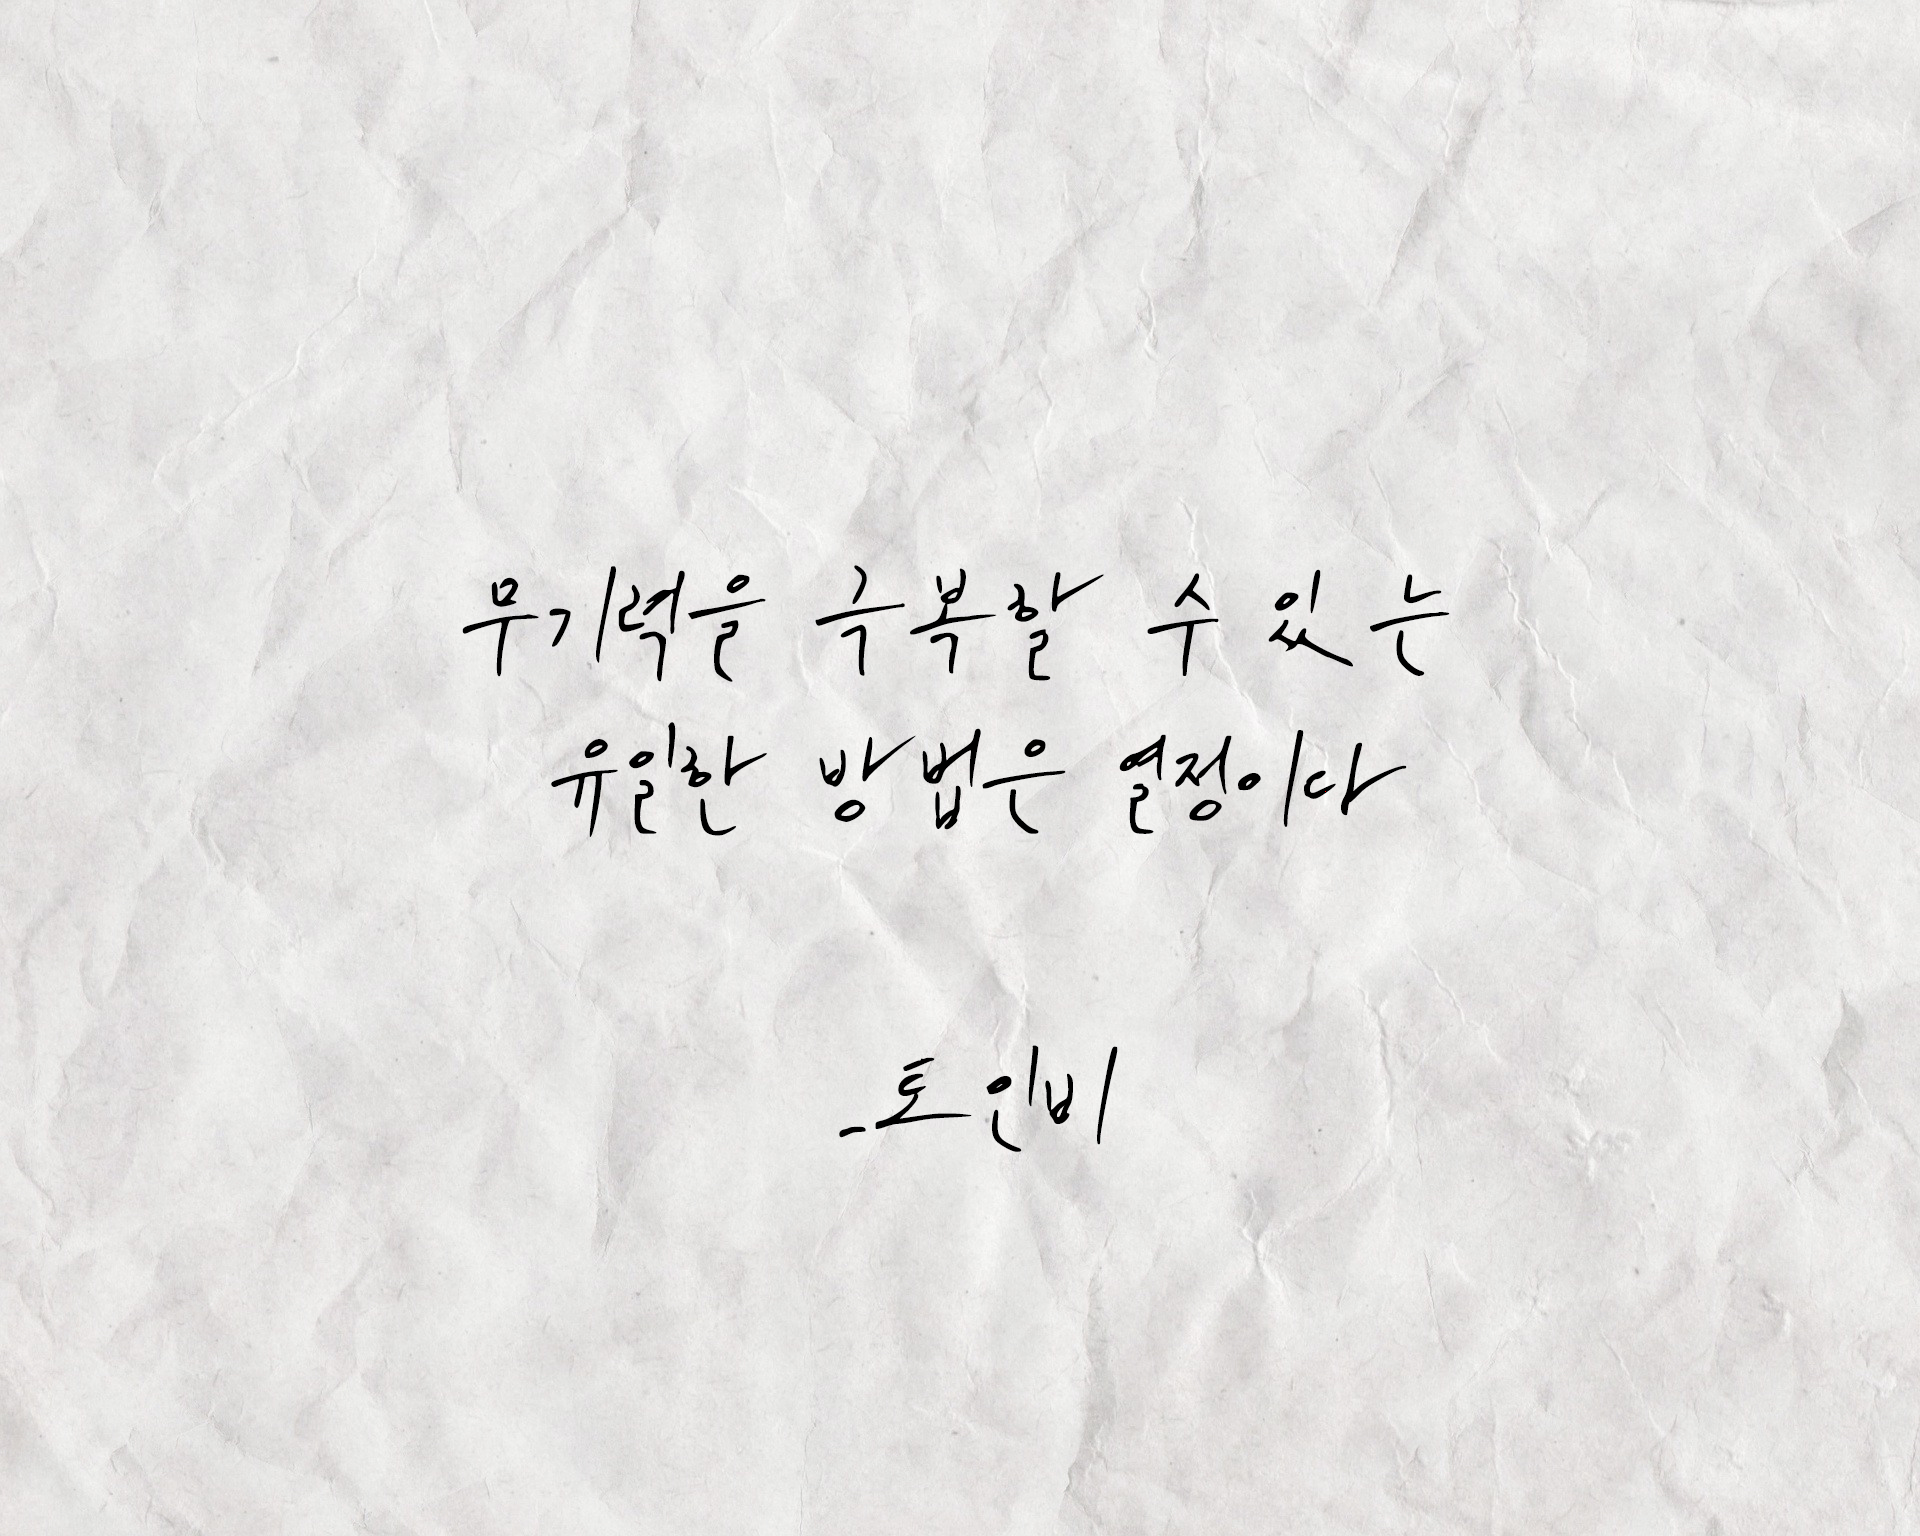 무기력을 극복할 수 있는
유일한 방법은 열정이다
_토인비